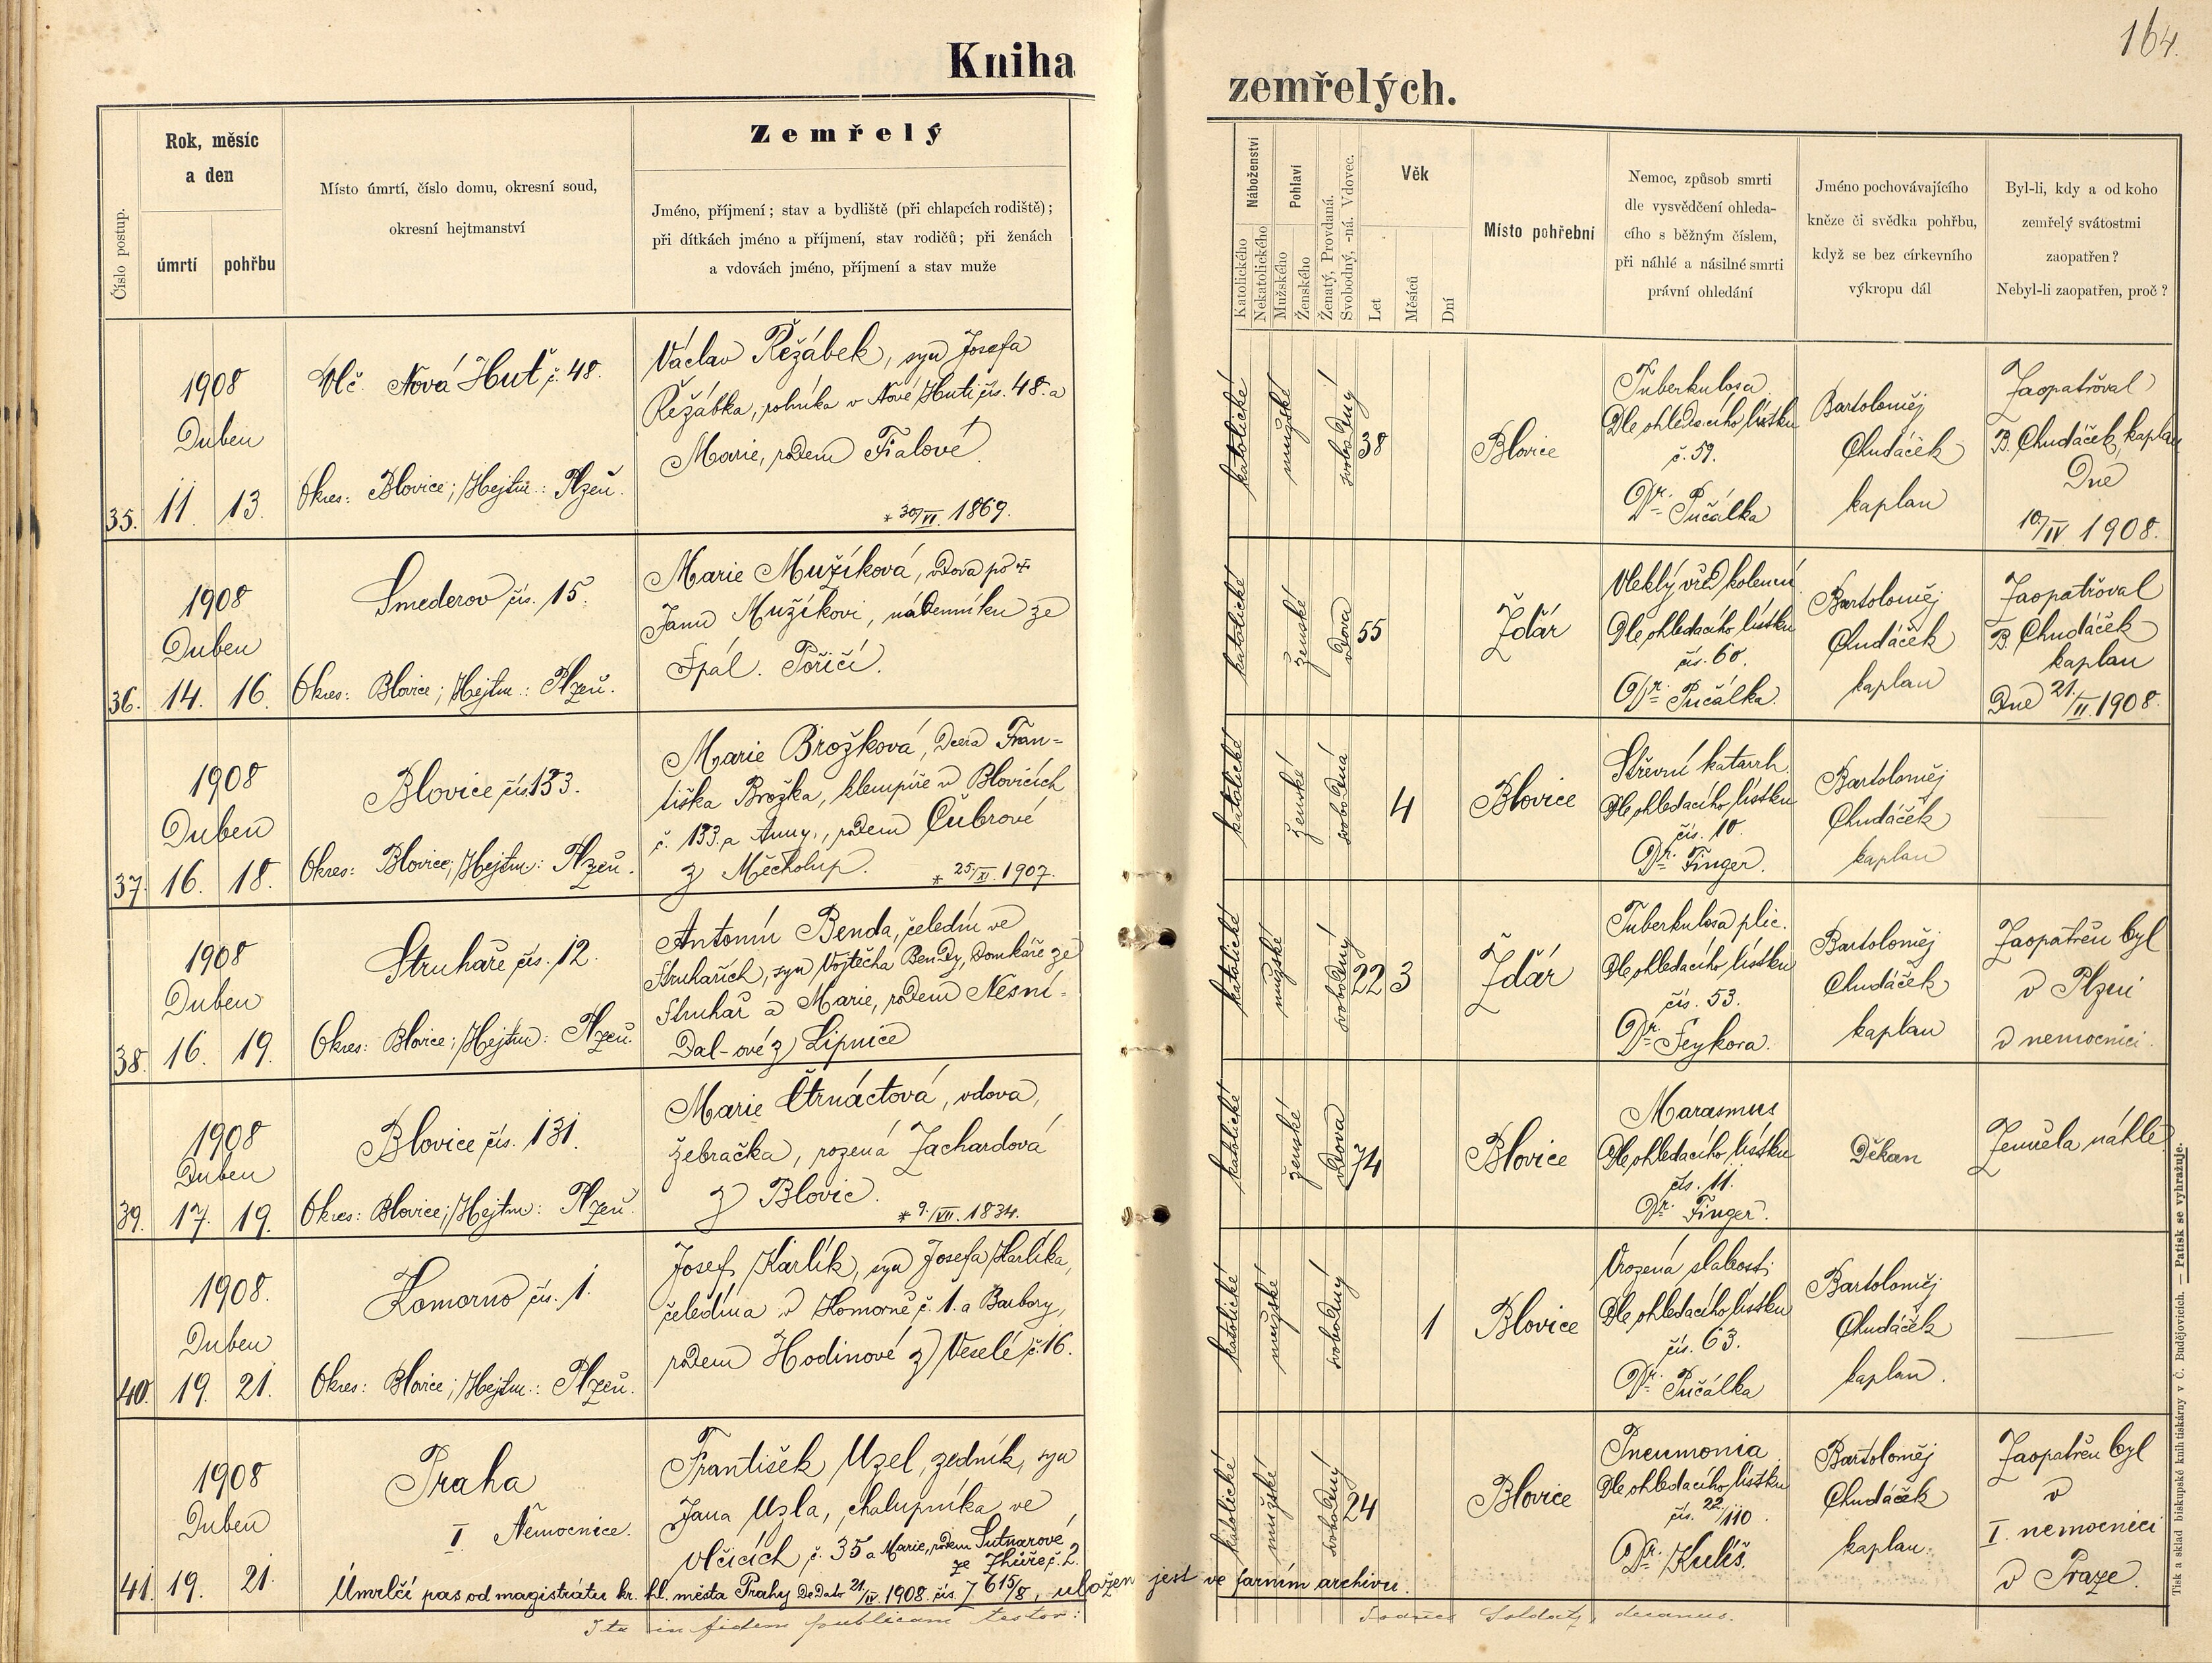 164.
Kniha zemřelých.
Číslo postup.
Rok, měsíc
a den
úmrtí
pohřbu
Místo úmrtí, číslo domu, okresní soud,
okresní hejtmanství
Zemřelý
Jméno, příjmení; stav a bydliště (při chlapcích rodiště);
při dítkách jméno a příjmení, stav rodičů; při ženách
a vdovách jméno, příjmení a stav muže
Náboženství
Katolického
Nekatolického
Pohlaví
Mužského
Ženského
Ženatý, Provdaná.
Svobodný, -ná. Vdovec.
Věk
Let
Měsíců
Dní
Místo pohřební
Nemoc, způsob smrti
dle vysvědčení ohleda-
cího s běžným číslem,
při náhlé a násilné smrti
právní ohledání
Jméno pochovávajícího
kněze či svědka pohřbu,
když se bez církevního
výkropu dál
Byl-li, kdy a od koho
zemřelý svátostmi
zaopatřen?
Nebyl-li zaopatřen, proč?
35.
1908
Duben
11. 13.
Vlč. Nová Huť č. 48.
Okres: Blovice; Hejtm.: Plzeň.
Václav Řežábek, syn Josefa
Řežábka, rolníka v Nové Huti čís. 48. a
Marie, rodem Fialové.
* 30/VI. 1869.
katolické
mužské
svobodný
38
Blovice
Tuberkulosa
Dle ohledacího lístku
č. 59.
Dr. Pučálka
Bartoloměj
Chudáček
kaplan
Zaopatřoval
B. Chudáček, kaplan
Dne
10/IV. 1908.
36.
1908
Duben
14. 16.
Smederov čís. 15.
Okres: Blovice; Hejtm.: Plzeň.
Marie Mužíková, vdova po +
Janu Mužíkovi, nádenníku ze
Spál. Poříčí.
katolické
ženské
vdova
55
Ždár
Vleklý vřed kolenní
Dle ohledacího lístku
čís. 60.
Dr. Pučálka.
Bartoloměj
Chudáček
kaplan
Zaopatřoval
B. Chudáček
kaplan
Dne 21./II. 1908.
37.
1908
Duben
16. 18.
Blovice čís. 133.
Okres: Blovice; Hejtm.: Plzeň.
Marie Brožková, dcera Fran-
tiška Brožka, klempíře v Blovicích
č. 133. a Anny, rodem Čubrové
z Měcholup.
* 25/XI. 1907.
katolické
ženské
svobodná
4
Blovice
Střevní katarrh
Dle ohledacího lístku
čís. 10.
Dr. Finger.
Bartoloměj
Chudáček
kaplan
38.
1908
Duben
16. 19.
Struhaře čís. 12.
Okres: Blovice; Hejtm: Plzeň.
Antonín Benda, čeledín ve
Struhařích, syn Vojtěcha Bendy, domkáře ze
Struhař a Marie, rodem Nesní-
dal-ové z Lipnice
katolické
mužské
svobodný
22 3
Ždár
Tuberkulosa plic.
Dle ohledacího lístku
čís. 53.
Dr. Seykora.
Bartoloměj
Chudáček
kaplan
Zaopatřen byl
v Plzni
v nemocnici.
39.
1908
Duben
17. 19.
Blovice čís. 131.
Okres: Blovice; Hejtm: Plzeň.
Marie Čtrnáctová, vdova,
žebračka, rozená Zachardová
z Blovic.
* 9./VII. 1834.
katolické
ženské
vdova
74
Blovice
Marasmus
Dle ohledacího lístku
čís. 11.
Dr. Finger.
Děkan
Zemřela náhle
40.
1908.
Duben
19. 21.
Komorno čís. 1.
Okres: Blovice; Hejtm.: Plzeň.
Josef Karlík, syn Josefa Karlíka,
čeledína v Komorně č. 1. a Barbory,
rodem Hodinové z Veselé č. 16.
katolické
mužské
svobodný
1
Blovice
Vrozená slabost.
Dle ohledacího lístku
čís. 63.
Dr. Pučálka
Bartoloměj
Chudáček
kaplan.
41.
1908
Duben
19. 21.
Praha
I. Nemocnice.
František Uzel, zedník, syn
Jana Uzla, chalupníka ve
Vlčicích č. 35 a Marie, rodem Sutnarové
ze Zhůře č. 2.
katolické
mužské
svobodný
24
Blovice
Pneumonia
Dle ohledacího lístku
čís. 22./110.
Dr. Kuliš.
Bartoloměj
Chudáček
kaplan.
Zaopatřen byl
v
I. nemocnici
v Praze.
Úmrlčí pas od magistrátu kr. hl. města Prahy De Dato 21/IV. 1908. čís. 7 615/8, uložen jest ve farním archivu.
Ita in fidem publicam testor: Soldát, decanus.
Tisk a sklad biskupské knihtiskárny v Č. Budějovicích. — Patisk se vyhražuje.